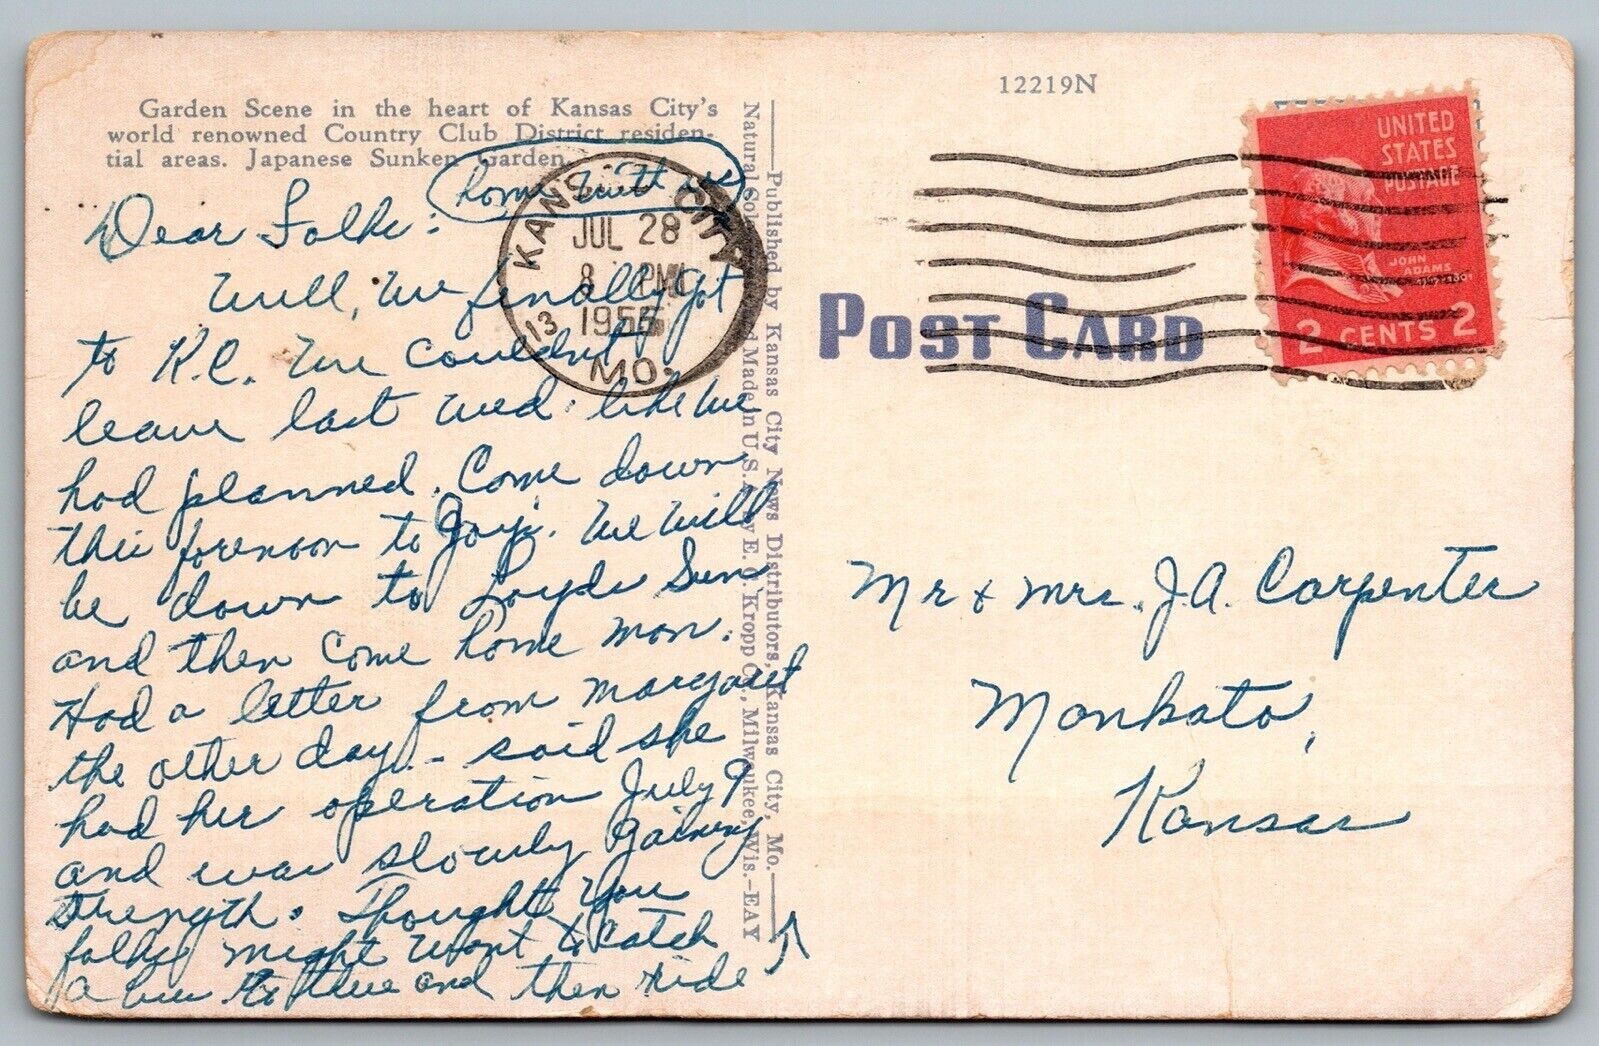 12219N
Garden Scene in the heart of Kansas City's
world renowned Country Club District residen-
tial areas. Japanese Sunken Garden.
Dear Folks:
Well, we finally got
to K.C. We couldn't
leave last Wed. like we
had planned. Come down
this forenoon to Joy's. We will
be down to Loyds Sun
and then come home Mon.
Had a letter from Margaret
the other day - said she
had her operation July 9
and was slowly gaining
strength. Thought you
folks might want to catch
a bus to there and then ride
home with us
KANSAS CITY
JUL 28
8 PM
1955
13
MO.
Published by Kansas City News Distributors, Kansas City, Mo.
Natural Color Made in U.S.A. by E. C. Kropp Co., Milwaukee, Wis.-EAY
POST CARD
UNITED
STATES
POSTAGE
JOHN
ADAMS
2 CENTS 2
Mr & Mrs. J.A. Carpenter
Mankato,
Kansas